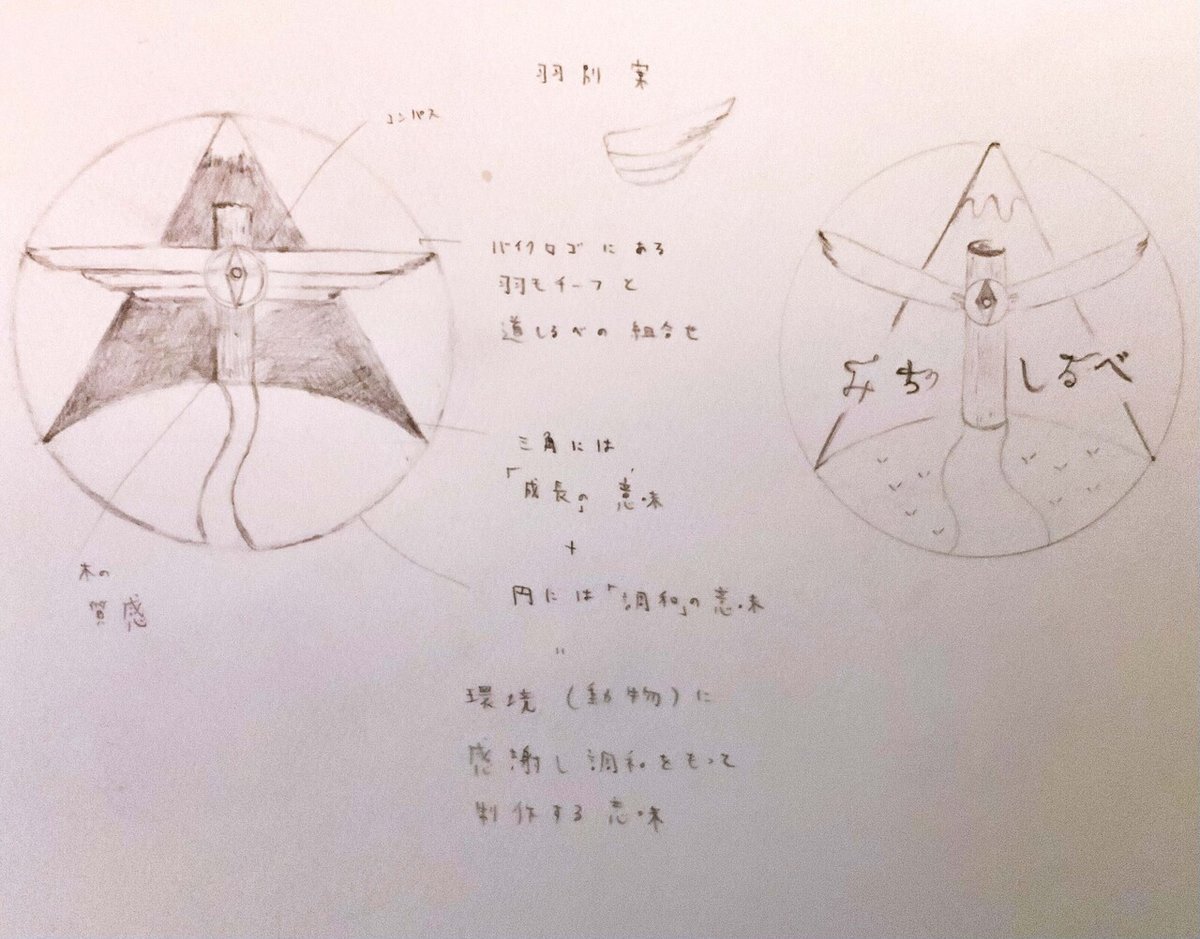 羽別案
コンパス
バイクロゴにある
羽モチーフと
道しるべの組合せ
みちの しるべ
三角には
「成長の」意味
+
円には「調和」の意味
"
木の
質感
環境(動物)に
感謝し調和をもって
制作する意味